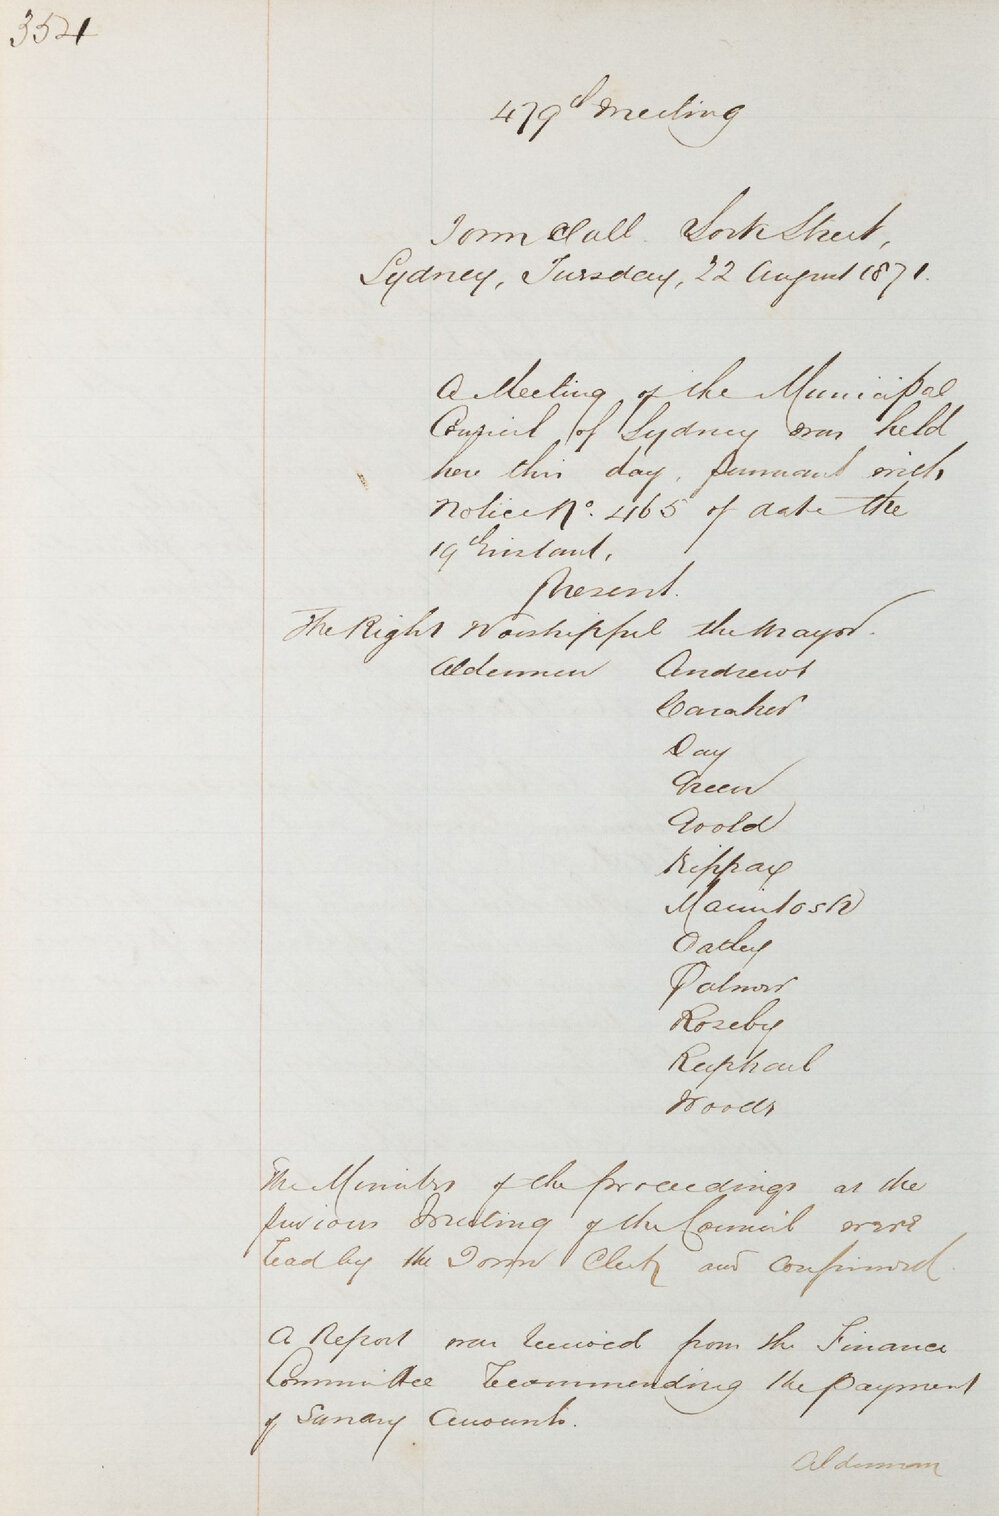 354
479th Meeting
Town Hall York Street,
Sydney, Tuesday, 22 August 1871.
A Meeting of the Municipal
Council of Sydney was held
here this day, pursuant with
Notice No. 465 of date the
19th instant.
Present.
The Right Worshipful the Mayor.
Aldermen Andrews
Caraher
Day
Green
Goold
Kippax
Macintosh
Oatley
Palmer
Roseby
Raphael
Woods
The Minutes of the proceedings at the
previous Meeting of the Council were
read by the Town Clerk and confirmed.
A Report was received from the Finance
Committee recommending the payment
of Sundry Amounts.
Alderman